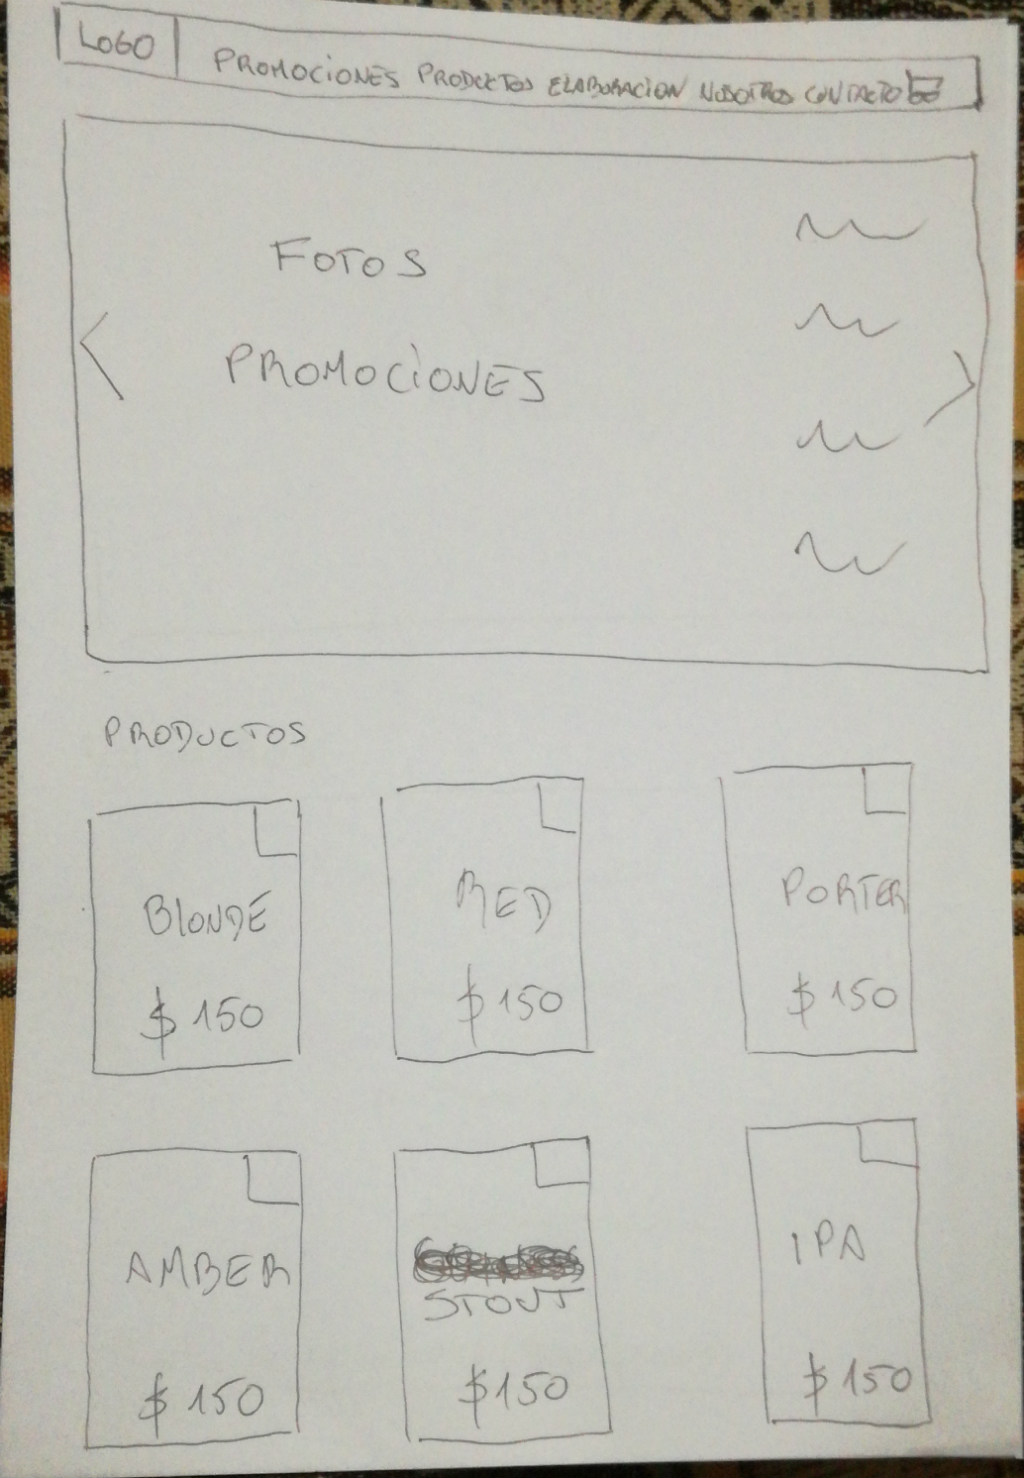 LOGO PROMOCIONES PRODUCTOS ELABORACION NOSOTROS CONTACTO
FOTOS
PROMOCIONES
PRODUCTOS
BLONDE RED PORTER
$150 $150 $150
AMBER STOUT IPA
$150 $150 $150